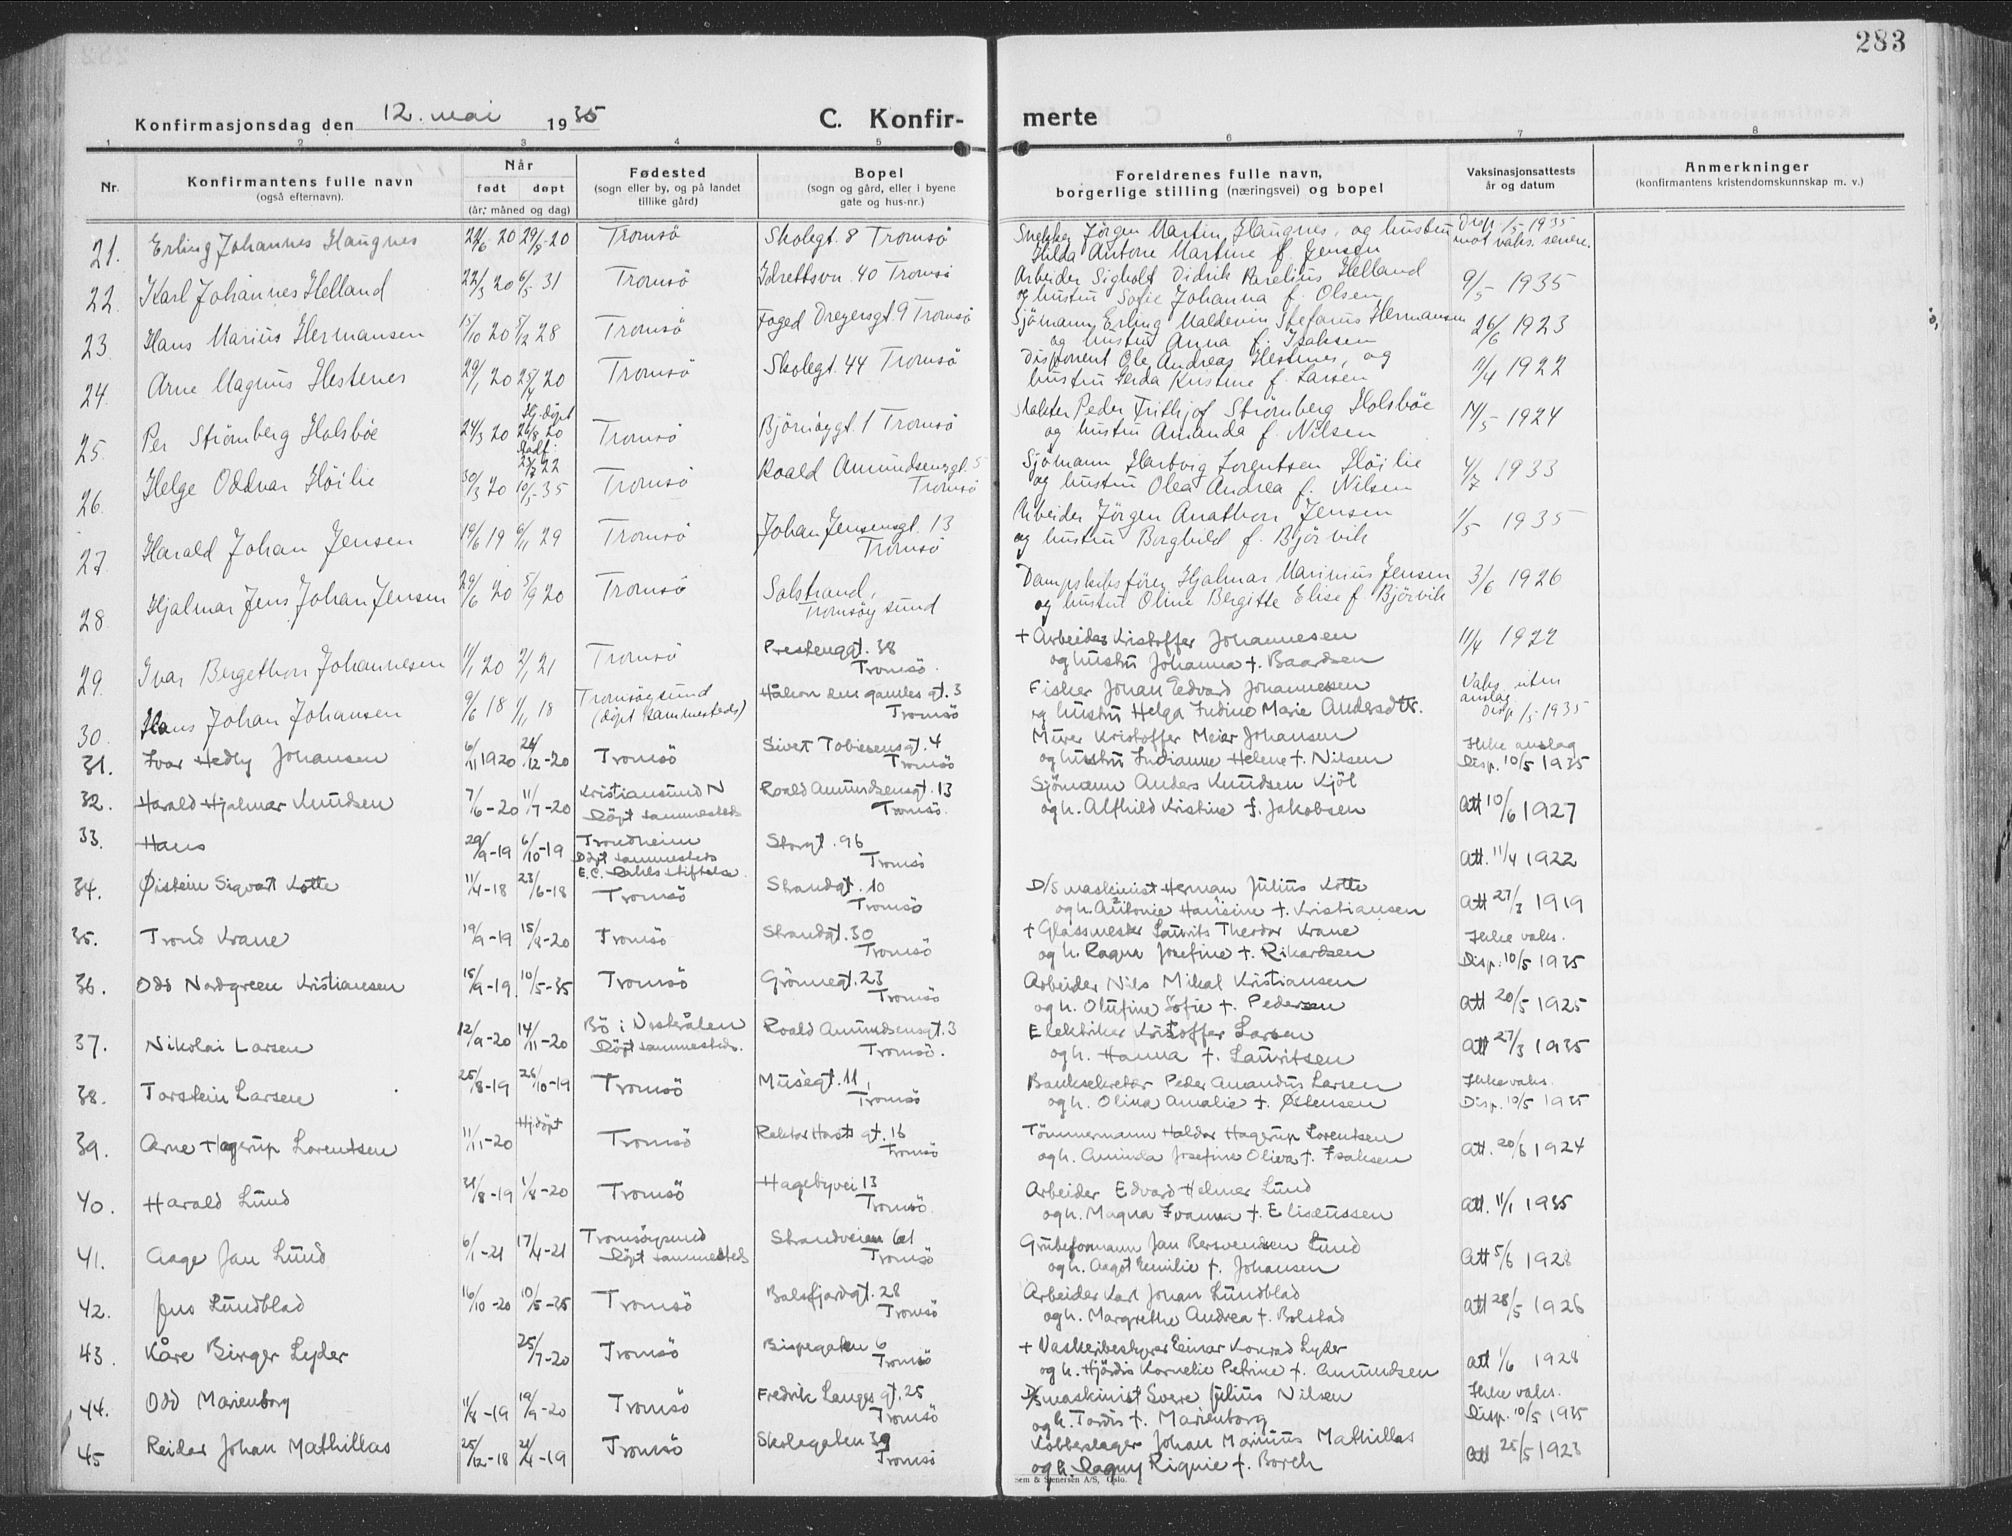 283
Konfirmasjonsdag den 12. mai 1935
C. Konfir- merte
1 2 3 4 5 6 7 8
Nr.
Konfirmantens fulle navn
(også efternavn).
Når
født døpt
(år, måned og dag)
Fødested
(sogn eller by, og på landet
tillike gård)
Bopel
(sogn og gård, eller i byene
gate og hus-nr.)
Foreldrenes fulle navn,
borgerlige stilling (næringsvei) og bopel
Vaksinasjonsattests
år og datum
Anmerkninger
(konfirmantens kristendomskunnskap m. v.)
21. Erling Johannes Haugnes 22/6 20 29/8-20 Tromsö Skolegt. 8 Tromsö Snekker Jörgen Martin Haugnes, og hustru Disp. 1/5-1935
Hilda Antone Martine f. Jensen mot vaks. senere.
22. Karl Johannes Helland 22/3 20 6/5 31 Tromsö Idrettsvn. 40 Tromsö Arbeider Sigholt Didrik Parelius Helland 9/5- 1935
og hustru Sofie Johanna f. Olsen
23. Hans Marius Hermansen 15/10 20 5/2 28 Tromsö Foged Dreyersgt. 9 Tromsö Sjömann Erling Maldevin Stefanus Hermansen 26/6 1923
og hustru Anna f. Isaksen
24. Arne Magnus Hestenes 29/1 20 25/4 20 Tromsö Skolegt. 44 Tromsö Disponent Ole Andreas Hestenes, og 11/4 1922
hustru Gerda Kristine f. Larsen
25. Per Strömberg Holsböe 24/3 20 Hj. döpt 26/8 20 Stadf. 25/5 22 Tromsö Björnöygt. 1 Tromsö Peder Frithjof Strömberg Holsböe 14/5- 1924
og hustru Amanda f. Nilsen
26. Helge Oddvar Höilie 30/3 20 10/5-35 Tromsö Roald Amundsensgt. 5 Sjömann Hartvig Lorentsen Höilie 4/7 1933
Tromsö og hustru Olea Andrea f. Nilsen
27. Harald Johan Jensen 19/6 19 6/1 29 Tromsö Johan Jensensgt. 13 Arbeider Jörgen Anathon Jensen 1/5 1935
Tromsö og hustru Borghild f. Björvik
28. Hjalmar Jens Johan Jensen 29/6 20 5/9 20 Tromsö Solstrand, Dampskibsförer Hjalmar Marinius Jensen 3/6 1926
Tromsöysund og hustru Oline Bergitte Elise f. Björvik
29. Ivar Bergethon Johannesen 11/1 20 2/1 21 Tromsö Prestenggt. 38 + Arbeider Kristoffer Johannesen 11/4 1922
Tromsö. og hustru Johanna f. Baardsen
30. Hans Johan Johansen 9/6 18 1/11 18 Tromsöysund Håkon den gamles gt. 3 Fisker Johan Edvard Johannesen Vaks. uten
(döpt sammesteds) Tromsö og hustru Helga Indine Marie Andersdtr. anslag Disp 1/5-1935
31. Ivar Hedly Johansen 6/11 1920 26/12-20 Tromsö Sivert Tobiesensgt. 4 Murer Kristoffer Meier Johansen Ikke anslag
Tromsö og hustru Indianne Helene f. Nilsen Disp. 10/5 1935
32. Harald Hjalmar Knudsen 7/6-20 11/7-20 Kristiansund N Roald Amundsensgt. 13 Sjömann Anders Knudsen Kjöl att 10/6 1927
Döpt sammesteds Tromsö. og h. Alfhild Kristine f. Jakobsen
33. Hans 29/9-19 6/10-19 Trondheim Storgt. 96 att. 11/4 1922
Döpt sammesteds Tromsö
E.C. Dahls Stiftelse.
34. Øistein Sigvart Kotte 11/4-18 23/6-18 Tromsö Strandgt. 10 D/S maskinist Herman Julius Kotte att 27/3 1919
Tromsö og h. Antonie Hansine f. Kristiansen
35. Trond Krane 19/9-19 15/8-20 Tromsö Strandgt. 30 + Glassmester Laurits Theodor Krane Ikke vaks.
Tromsö og h. Ragna Josefine f. Rikardsen Disp. 10/5 1935
36. Odd Nordgreen Kristiansen 15/9-19. 10/5-35 Tromsö Grönnegt. 23 Arbeider Nils Mikal Kristiansen att 20/5 1925
Tromsö og h. Olufine Sofie f. Pedersen
37. Nikolai Larsen 12/9-20 14/11-20 Bö i Vesterålen Roald Amundsensgt. 3 Elektriker Kristoffer Larsen att 27/3 1935
Döpt sammesteds. Tromsö. og h. Hanna f. Lauritsen
38. Torstein Larsen 25/8-19 26/10-19 Tromsö Musègt. 11, Banksekretær Peder Amandus Larsen Ikke vaks.
Tromsö og h. Olina Amalie f. Østensen Disp. 10/5 1935
39. Arne Hagerup Lorentsen 11/11-20 Hj.döpt Tromsö Rektor Horsts gt. 16 Tömmermann Haldor Hagerup Lorentsen att. 20/6 1924
Tromsö og h. Aminda Josefine Oliva f. Isaksen
40. Harald Lund 31/8-19 1/8-20 Tromsö Hagebyvei 13 Arbeider Edvard Helmer Lund att. 11/1 1935
Tromsö. og h. Magna Ivanna f. Eliseussen
41. Aage Jan Lund 6/1-21 17/4-21 Tromsöysund Strandveien 61 Grubeformann Jan Rersvendsen Lund att 5/6 1928
Döpt sammesteds Tromsö og h. Aagot Emilie f. Johansen
42. Jens Lundblad 16/10-20 10/5-35 Tromsö Balsfjordgt. 28 Arbeider Karl Johan Lundblad att 28/5 1926
Tromsö og h. Margrethe Andrea f. Bolstad
43. Kåre Birger Lyder 25/7-20 Tromsö Bispegaten 6 + Vaskeribestyrer Einar Konrad Lyder att 1/6 1928
Tromsö og h. Hjördis Kornelie Petrine f. Amundsen
44. Odd Marienborg 11/8-19 19/9-20 Tromsö Fredrik Langes gt. 25 D/S maskinist Sverre Julius Nilsen Ikke vaks.
Tromsö og h. Tordis f. Marienborg Disp. 10/5 1935
45 Reidar Johan Mathillas 25/12-18 21/4-19 Tromsö Skolegaten 39 Kobberslager Johan Marinus Mathillas att 25/5 1923
Tromsö og h. Dagny Rignie f. Borch
Sem & Stenersen A/S, Oslo.